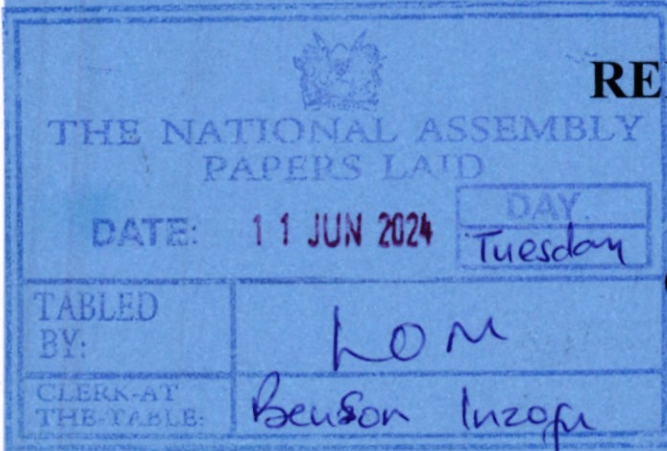 RE
THE NATIONAL ASSEMBLY
PAPERS LAID
DATE: 11 JUN 2024
DAY.
Tuesday
TABLED
BY:
LOM
CLERK-AT
THE-TABLE:
Benson Inzofu